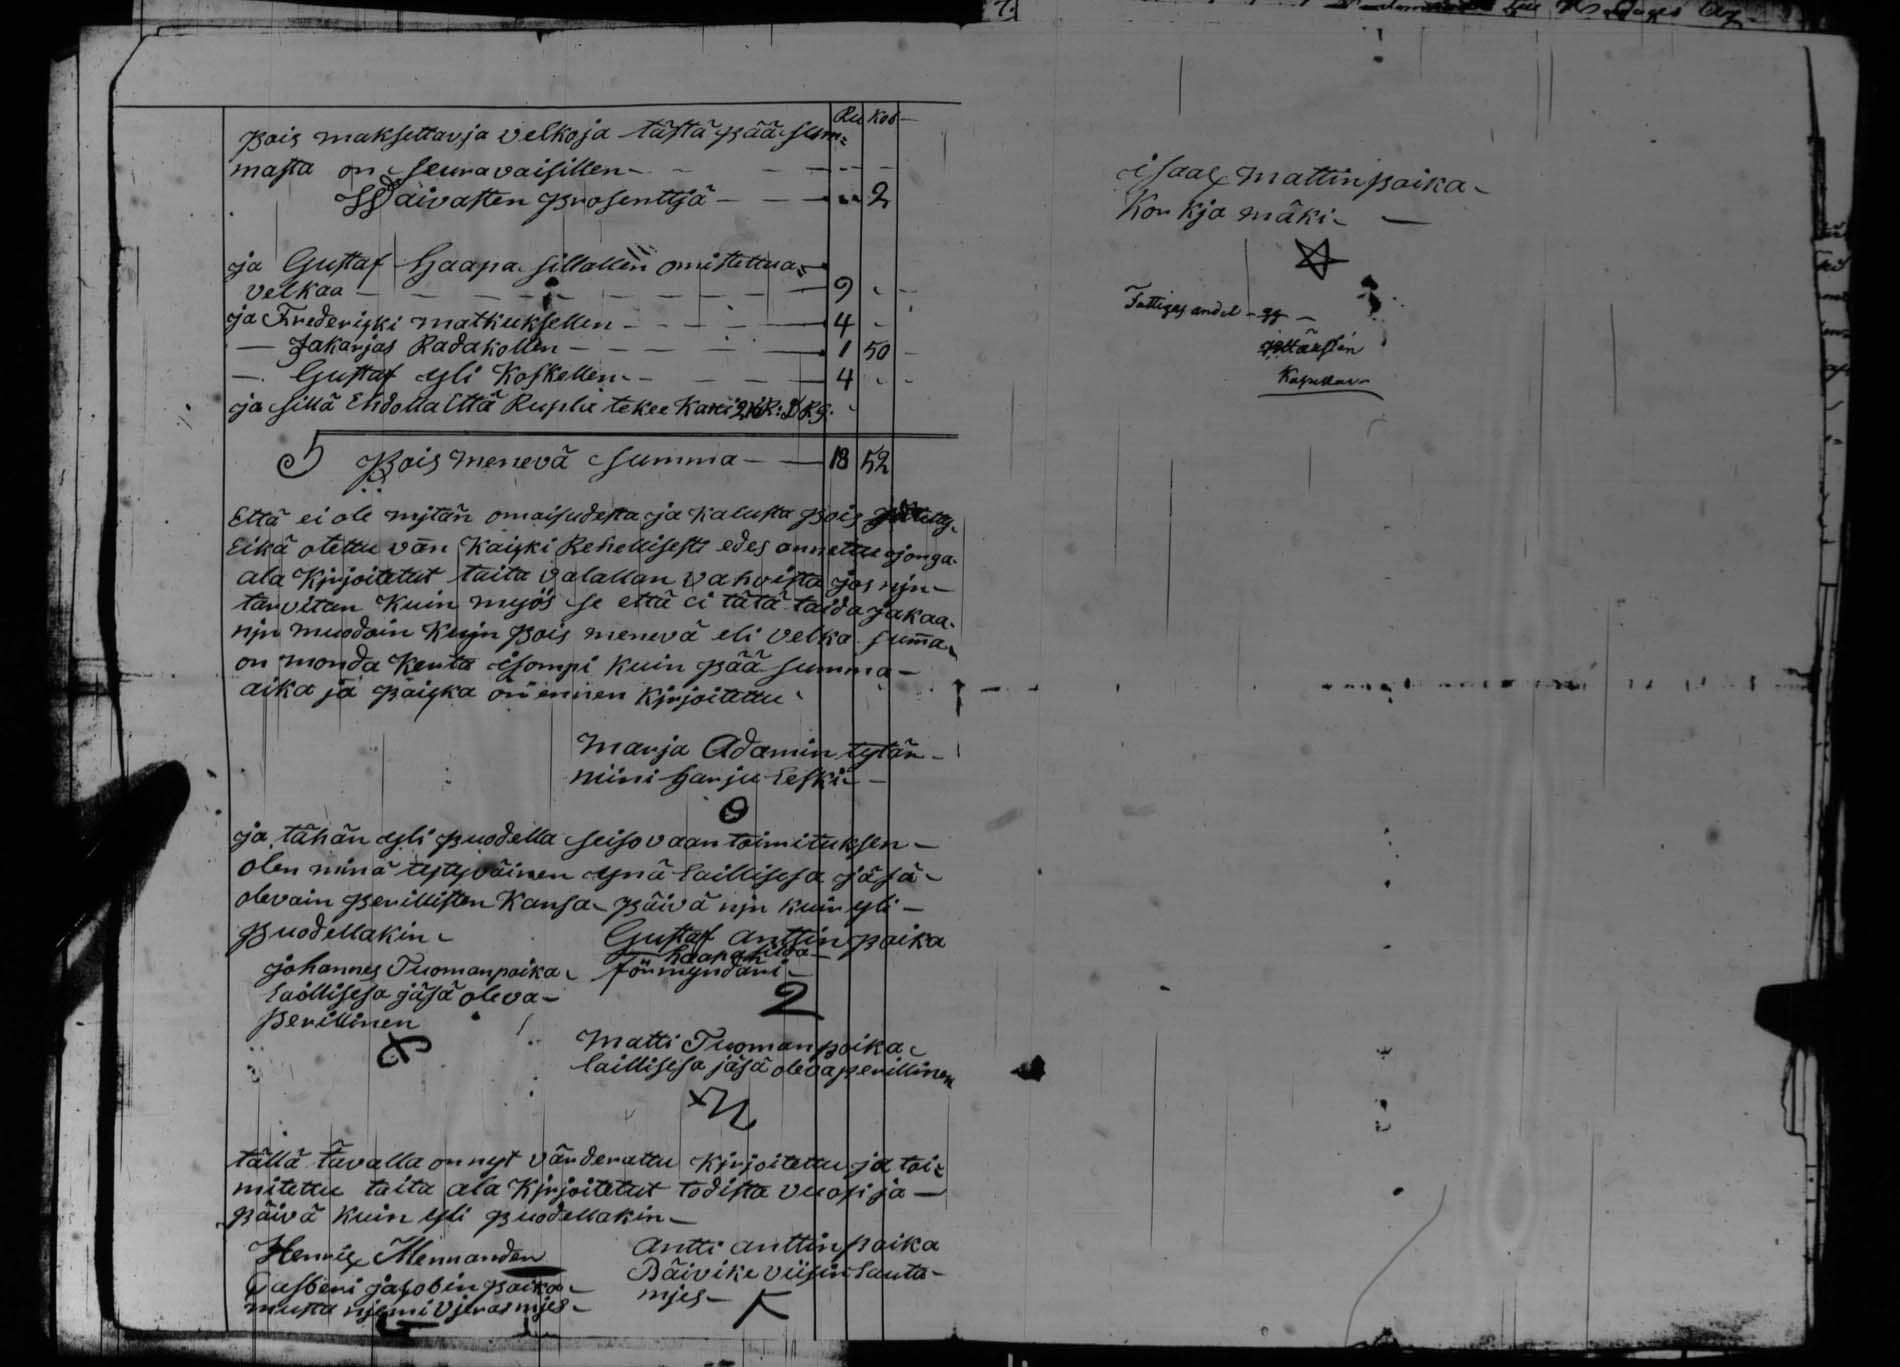 Ru Kob
pois maksettavja velkoja tästä pää sum=
masta on seuravaisillen
Waivasten prosenttjä 2
ja Gustaf Haapa sillallen omistettua
velkaa 9
ja Frederizki matkuksellen 4
Zakarjas Radakollen 1 50
Gustaf yli Koskellen 4
ja sillä Ehdolla Että Rupla tekee
Pois menevä summa 18 52
Että ei ole mjtän omaisudesta ja kalusta pois
Eikä otettu van kaicki Rehellisesti edes annettu jonga
ala kjrjoitetut taita valallan vahvista jos njn
tarvitan kuin myös se että ei tätä taida jakaa
njn muodoin kujn pois menevä eli velka summa
on monda kerta isompi kuin pää summa
aika ja paicka on ennen kjrjoitettu
Marja Adamin tytär
mini harju Leski
ja tähän yli puodella seisovaan toimituksen
olen minä tytyväinen ynä Laillisesa jäsä
olevain perillisten Kansa päivä njn kuin yli
puodellakin
Gustaf anttin poika
haapasilda
förmyndäri
Johannes Tuomanpoika
Laillisesa jäsä oleva
perillinen
Matti Tuomanpoika
laillisesa jäsä oleva perillinen
tällä tavalla on nyt värderattu kjrjoitettu ja toi=
mitettu taita ala kjrjoitetut todista vuosi ja
päivä kuin yli puodellakin
Henric Mennanden
Casberi jacobin poika
musta njemi vjerasmjes
Antti anttin poika
Päivike viisin Lauta
mjes
isaac mattin poika
Kor kja mäki
Fattiges andel
Kapellan